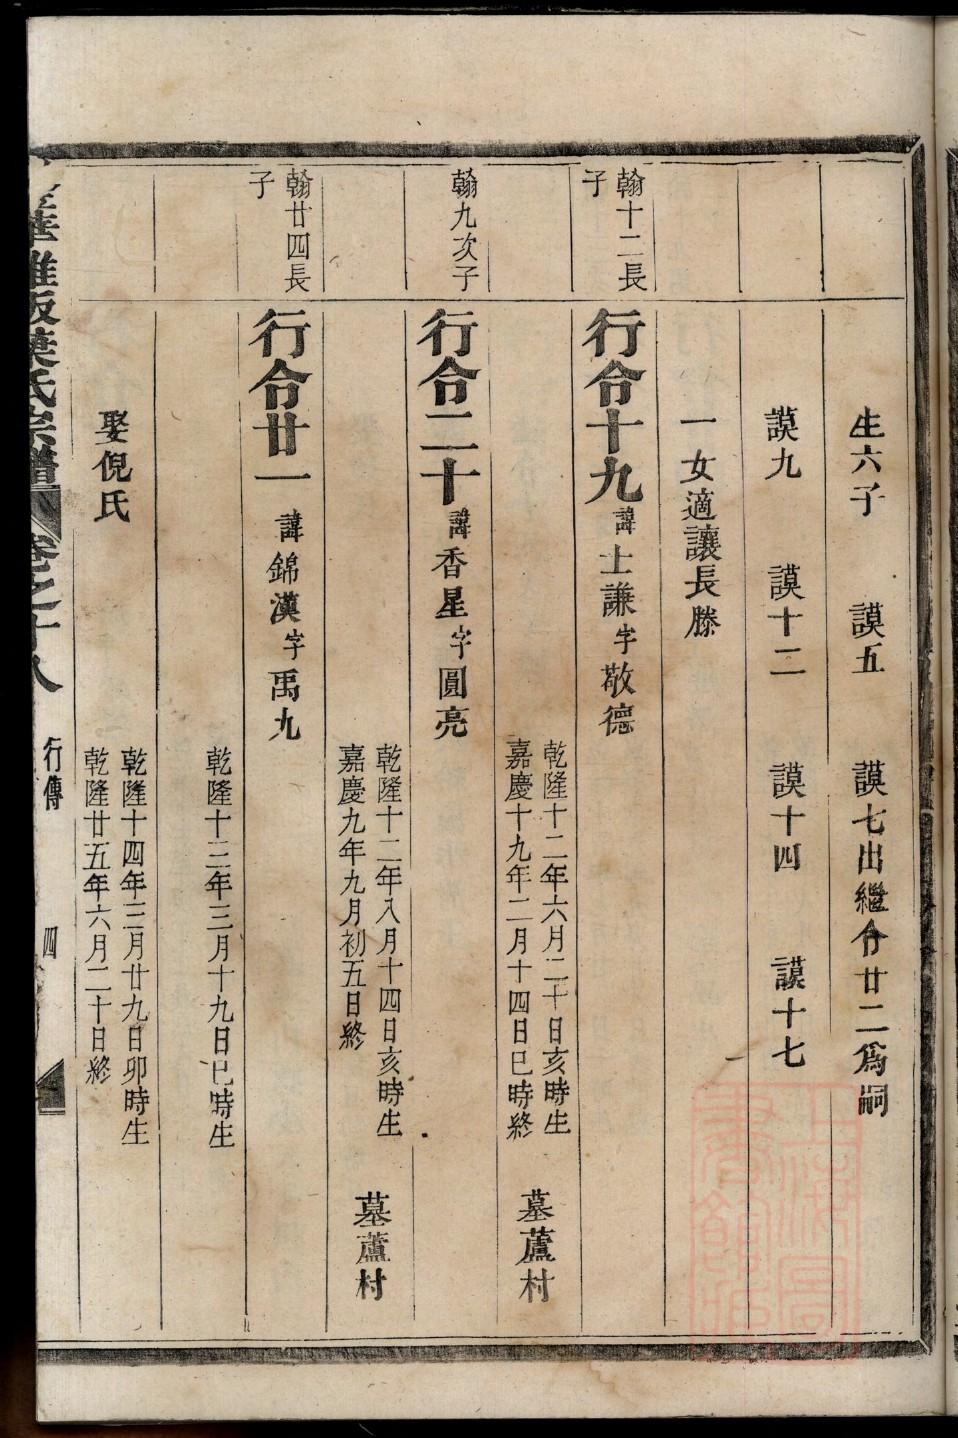 生六子 謨五 謨七出繼令廿二爲嗣
謨九 謨十二 謨十四 謨十七
一女適讓長滕
翰十二長子
行令十九 諱士謙字敬德
乾隆十二年六月二十日亥時生
嘉慶十九年二月十四日巳時終
墓蘆村
翰九次子
行令二十 諱香星字圓亮
乾隆十二年八月十四日亥時生
嘉慶九年九月初五日終
墓蘆村
翰廿四長子
行令廿一 諱錦漢字禹九
乾隆十三年三月十九日巳時生
娶倪氏
乾隆十四年三月廿九日卯時生
乾隆廿五年六月二十日終
華 阪葉氏宗譜 卷之十八 行傳 四
上海圖書館藏